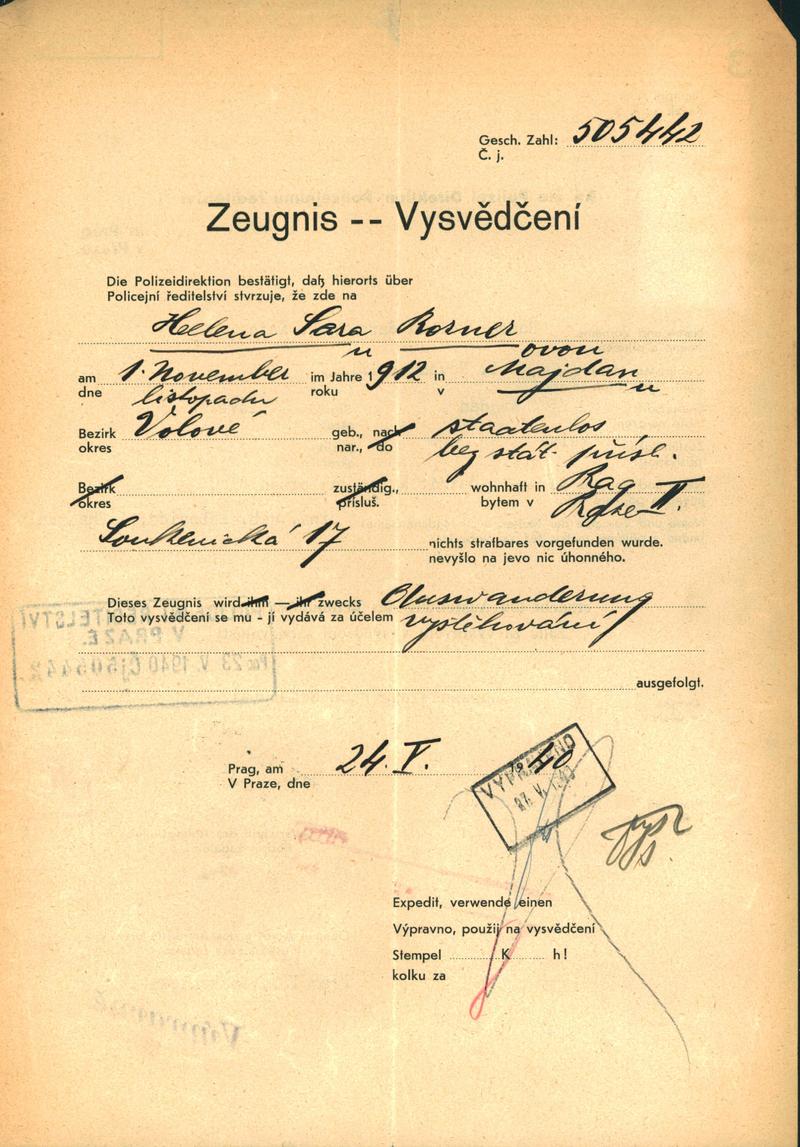 Gesch. Zahl: 505442
Č. j.
Zeugnis -- Vysvědčení
Die Polizeidirektion bestätigt, daß hierorts über
Policejní ředitelství stvrzuje, že zde na
Helena Sara Rosner
u ovou
am 1. November im Jahre 1912 in Majdan
dne listopadu roku v u
Bezirk Volové geb., nach staatenlos
okres nar., do bez stát. přísl.
Bezirk zuständig., wohnhaft in Prag II.
okres přísluš. bytem v Praze
Soukenická 17 nichts strafbares vorgefunden wurde.
nevyšlo na jevo nic úhonného.
Dieses Zeugnis wird ihm — ihr zwecks Auswanderung
Toto vysvědčení se mu - jí vydává za účelem vystěhování
V PRAZE
23. V. 1940 Čj 505442
ausgefolgt.
Prag, am 24. V. 1940
V Praze, dne
VYPRAVENO
27. V. 1940
Expedit, verwende einen
Výpravno, použij na vysvědčení
Stempel K h!
kolku za